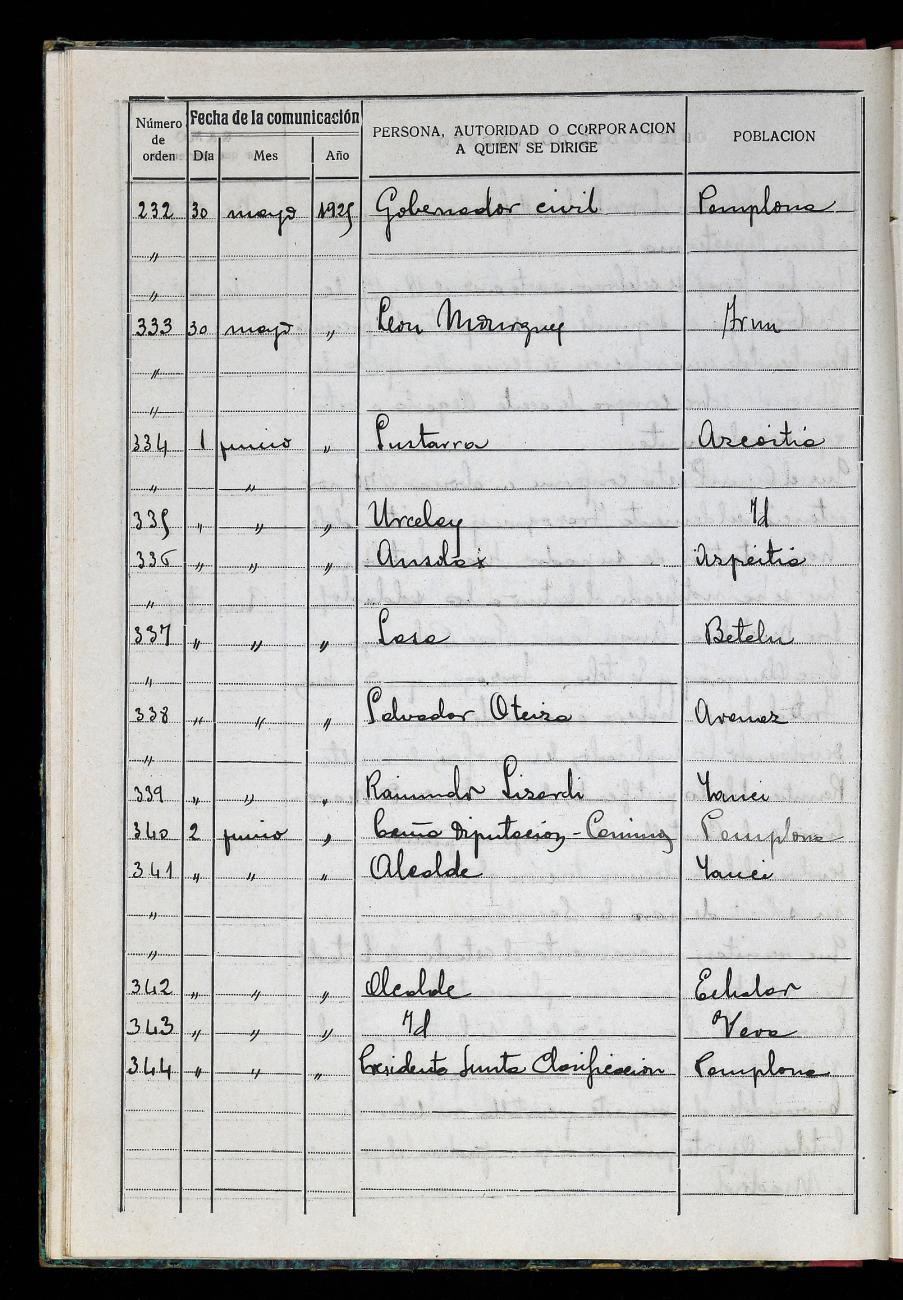 Número de orden Fecha de la comunicación PERSONA, AUTORIDAD O CORPORACION A QUIEN SE DIRIGE POBLACION
Día Mes Año
232 30 mayo 1925 Gobernador civil Pamplona
"
"
333 30 mayo " Leon Mourgues Irun
"
"
334 1 junio " Lustarra Azcoitia
" "
335 " " " Urcelay Id
336 " " " Ansola Aspeitia
"
337 " " " Lasa Betelu
"
338 " " " Salvador Oteiza Aranaz
"
339 " " " Raimundo Lizardi Yanci
340 2 junio " Diputacion - Pamplona
341 " " " Alcalde Yanci
"
"
342 " " " Alcalde Echalar
343 " " " Id Vera
344 " " " Presidente Junta Clasificacion Pamplona